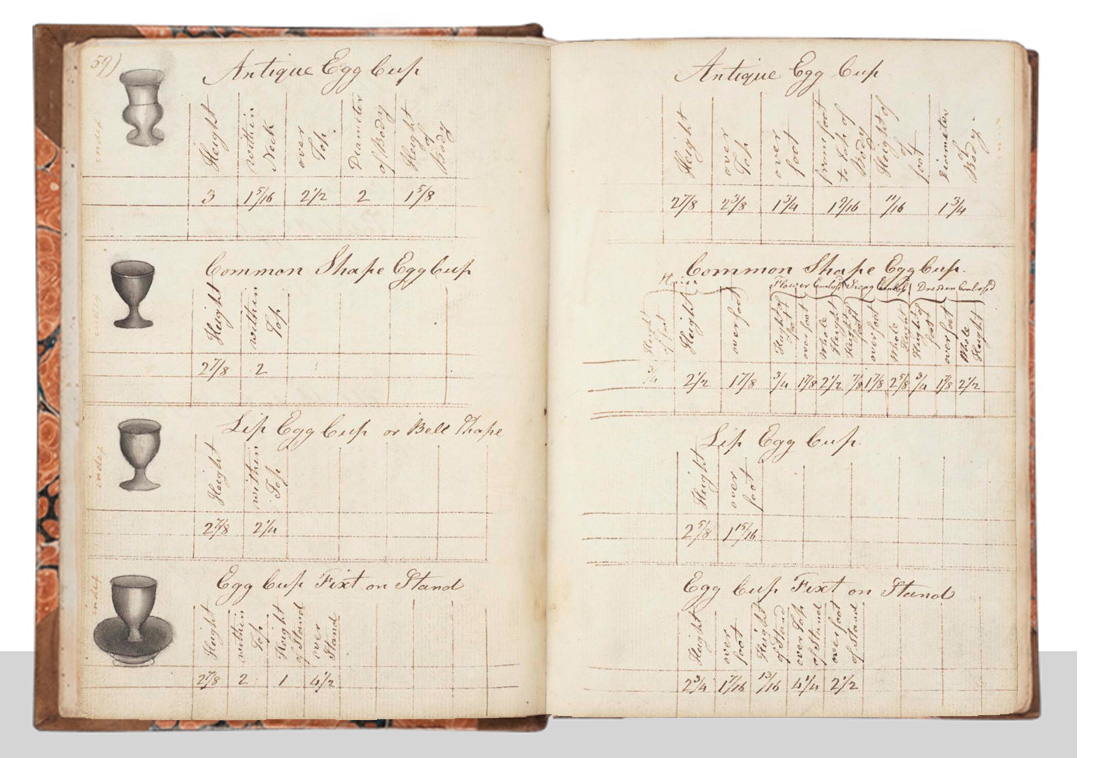 59)
Antique Egg Cup
Height
within Neck
over Top
Diameter of Body
Height of Body
3 1 5/16 2 1/2 2 1 5/8
index
Common Shape Egg Cup
Height
within Top
2 7/8 2
index
Lip Egg Cup or Bell Shape
Height
within Top
2 7/8 2 1/4
index
Egg Cup Fixt on Stand
Height
within Top
Height of Stand
over Stand
2 7/8 2 1 4 1/2
index
Antique Egg Cup
Height
over Top
over foot
from foot to Top of Body
Height of foot
Diameter of Body.
2 7/8 2 3/8 1 3/4 1 9/16 11/16 1 3/4
Common Shape Egg Cup.
Flower Enclosed
Dresden Enclosed
Height of foot
Height
over foot
Height of foot
over foot
Whole Height
Height of foot
over foot
Whole Height
Height of foot
over foot
Whole Height
3/4 2 1/2 1 7/8 3/4 1 7/8 2 1/2 7/8 1 7/8 2 5/8 3/4 1 7/8 2 1/2
Lip Egg Cup.
Height
over foot
2 5/8 1 15/16
Egg Cup Fixt on Stand
Height
over foot
Height of Stand
over Top of Stand
over foot of Stand
2 3/4 1 7/16 13/16 4 1/4 2 1/2